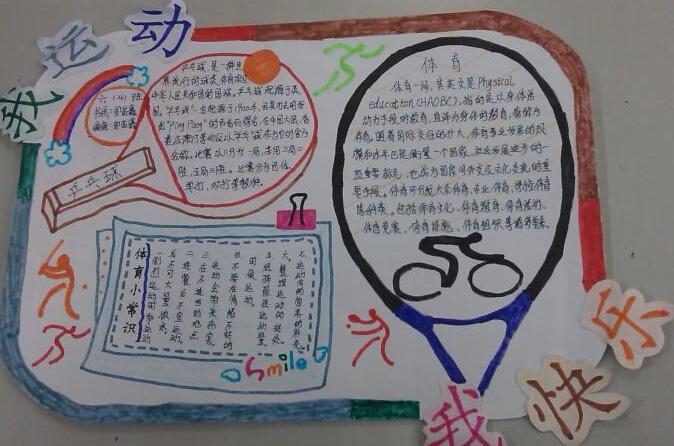 我
运
动
我
快
乐
六（4）班
乒乓球
乒乓球 是一种世
界流行的球类体育项目
中华人民共和国的国球。乒乓球起源于英
国。"乒乓球"一名起源于1900年，因其打击时发
出"Ping Pong"的声音而得名，在中国大陆、香
港及澳门等地区以"乒乓球"作为它的官方
名称。比赛以11分为一局，采用三局二
胜、五局三胜。比赛分为团体、
单打、双打等数种。
体育
体育一词，其英文是Physical
education(HAOBC)，指的是以身体活
动为手段的教育，直译为身体的教育，简称为
体育。随着国际交往的扩大，体育事业发展的规
模和水平已是衡量一个国家、社会发展进步的一
项重要标志，也成为国家间外交及文化交流的重
要手段。体育可分为大众体育、专业体育、学校体育
等种类。包括体育文化、体育教育、体育活动、
体育竞赛、体育设施、体育组织等诸多要素。
体育小常识
一、剧烈运动时和运动
后不可大量饮水。
二、进餐后不宜运动。
三、在不适当的地点
运动会带来伤害。
四、不要在情绪不好的
时候运动。
Smile